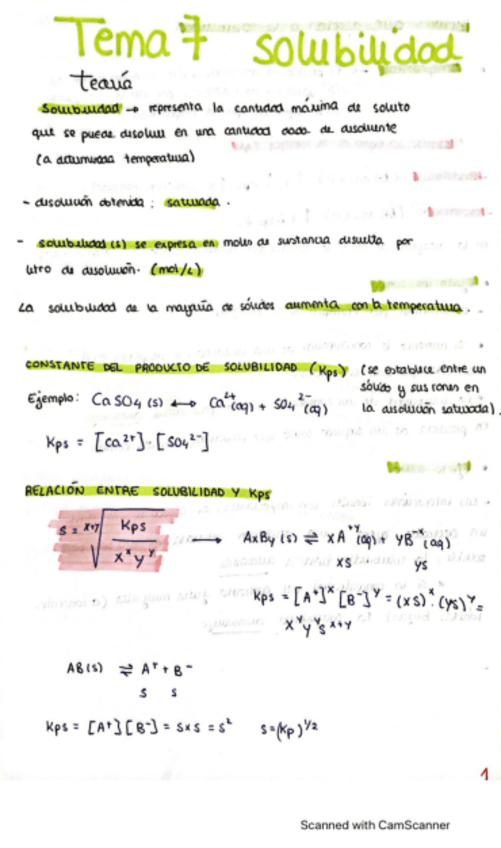 Tema 7 solubilidad
teoría
Solubilidad → representa la cantidad máxima de soluto
que se puede disolver en una cantidad dada de disolvente
(a determinada temperatura)
- disolución obtenida : saturada .
- solubilidad (s) se expresa en moles de sustancia disuelta por
litro de disolución. (mol/L)
La solubilidad de la mayoría de sólidos aumenta con la temperatura.
CONSTANTE DEL PRODUCTO DE SOLUBILIDAD (Kps) (se establece entre un
sólido y sus iones en
la disolución saturada).
Ejemplo: CaSO4 (s) ⟷ Ca²⁺(aq) + SO4²⁻(aq)
Kps = [Ca²⁺]·[SO4²⁻]
RELACIÓN ENTRE SOLUBILIDAD Y Kps
s = ˣ⁺ʸ√(Kps / xˣyʸ) ⟶ AxBy (s) ⇌ xA⁺ʸ(aq) + yB⁻ˣ(aq)
xs ys
Kps = [A⁺]ˣ [B⁻]ʸ = (xs)ˣ·(ys)ʸ =
xˣyʸsˣ⁺ʸ
AB(s) ⇌ A⁺ + B⁻
s s
Kps = [A⁺][B⁻] = s×s = s² s=(Kp)^1/2
1
Scanned with CamScanner